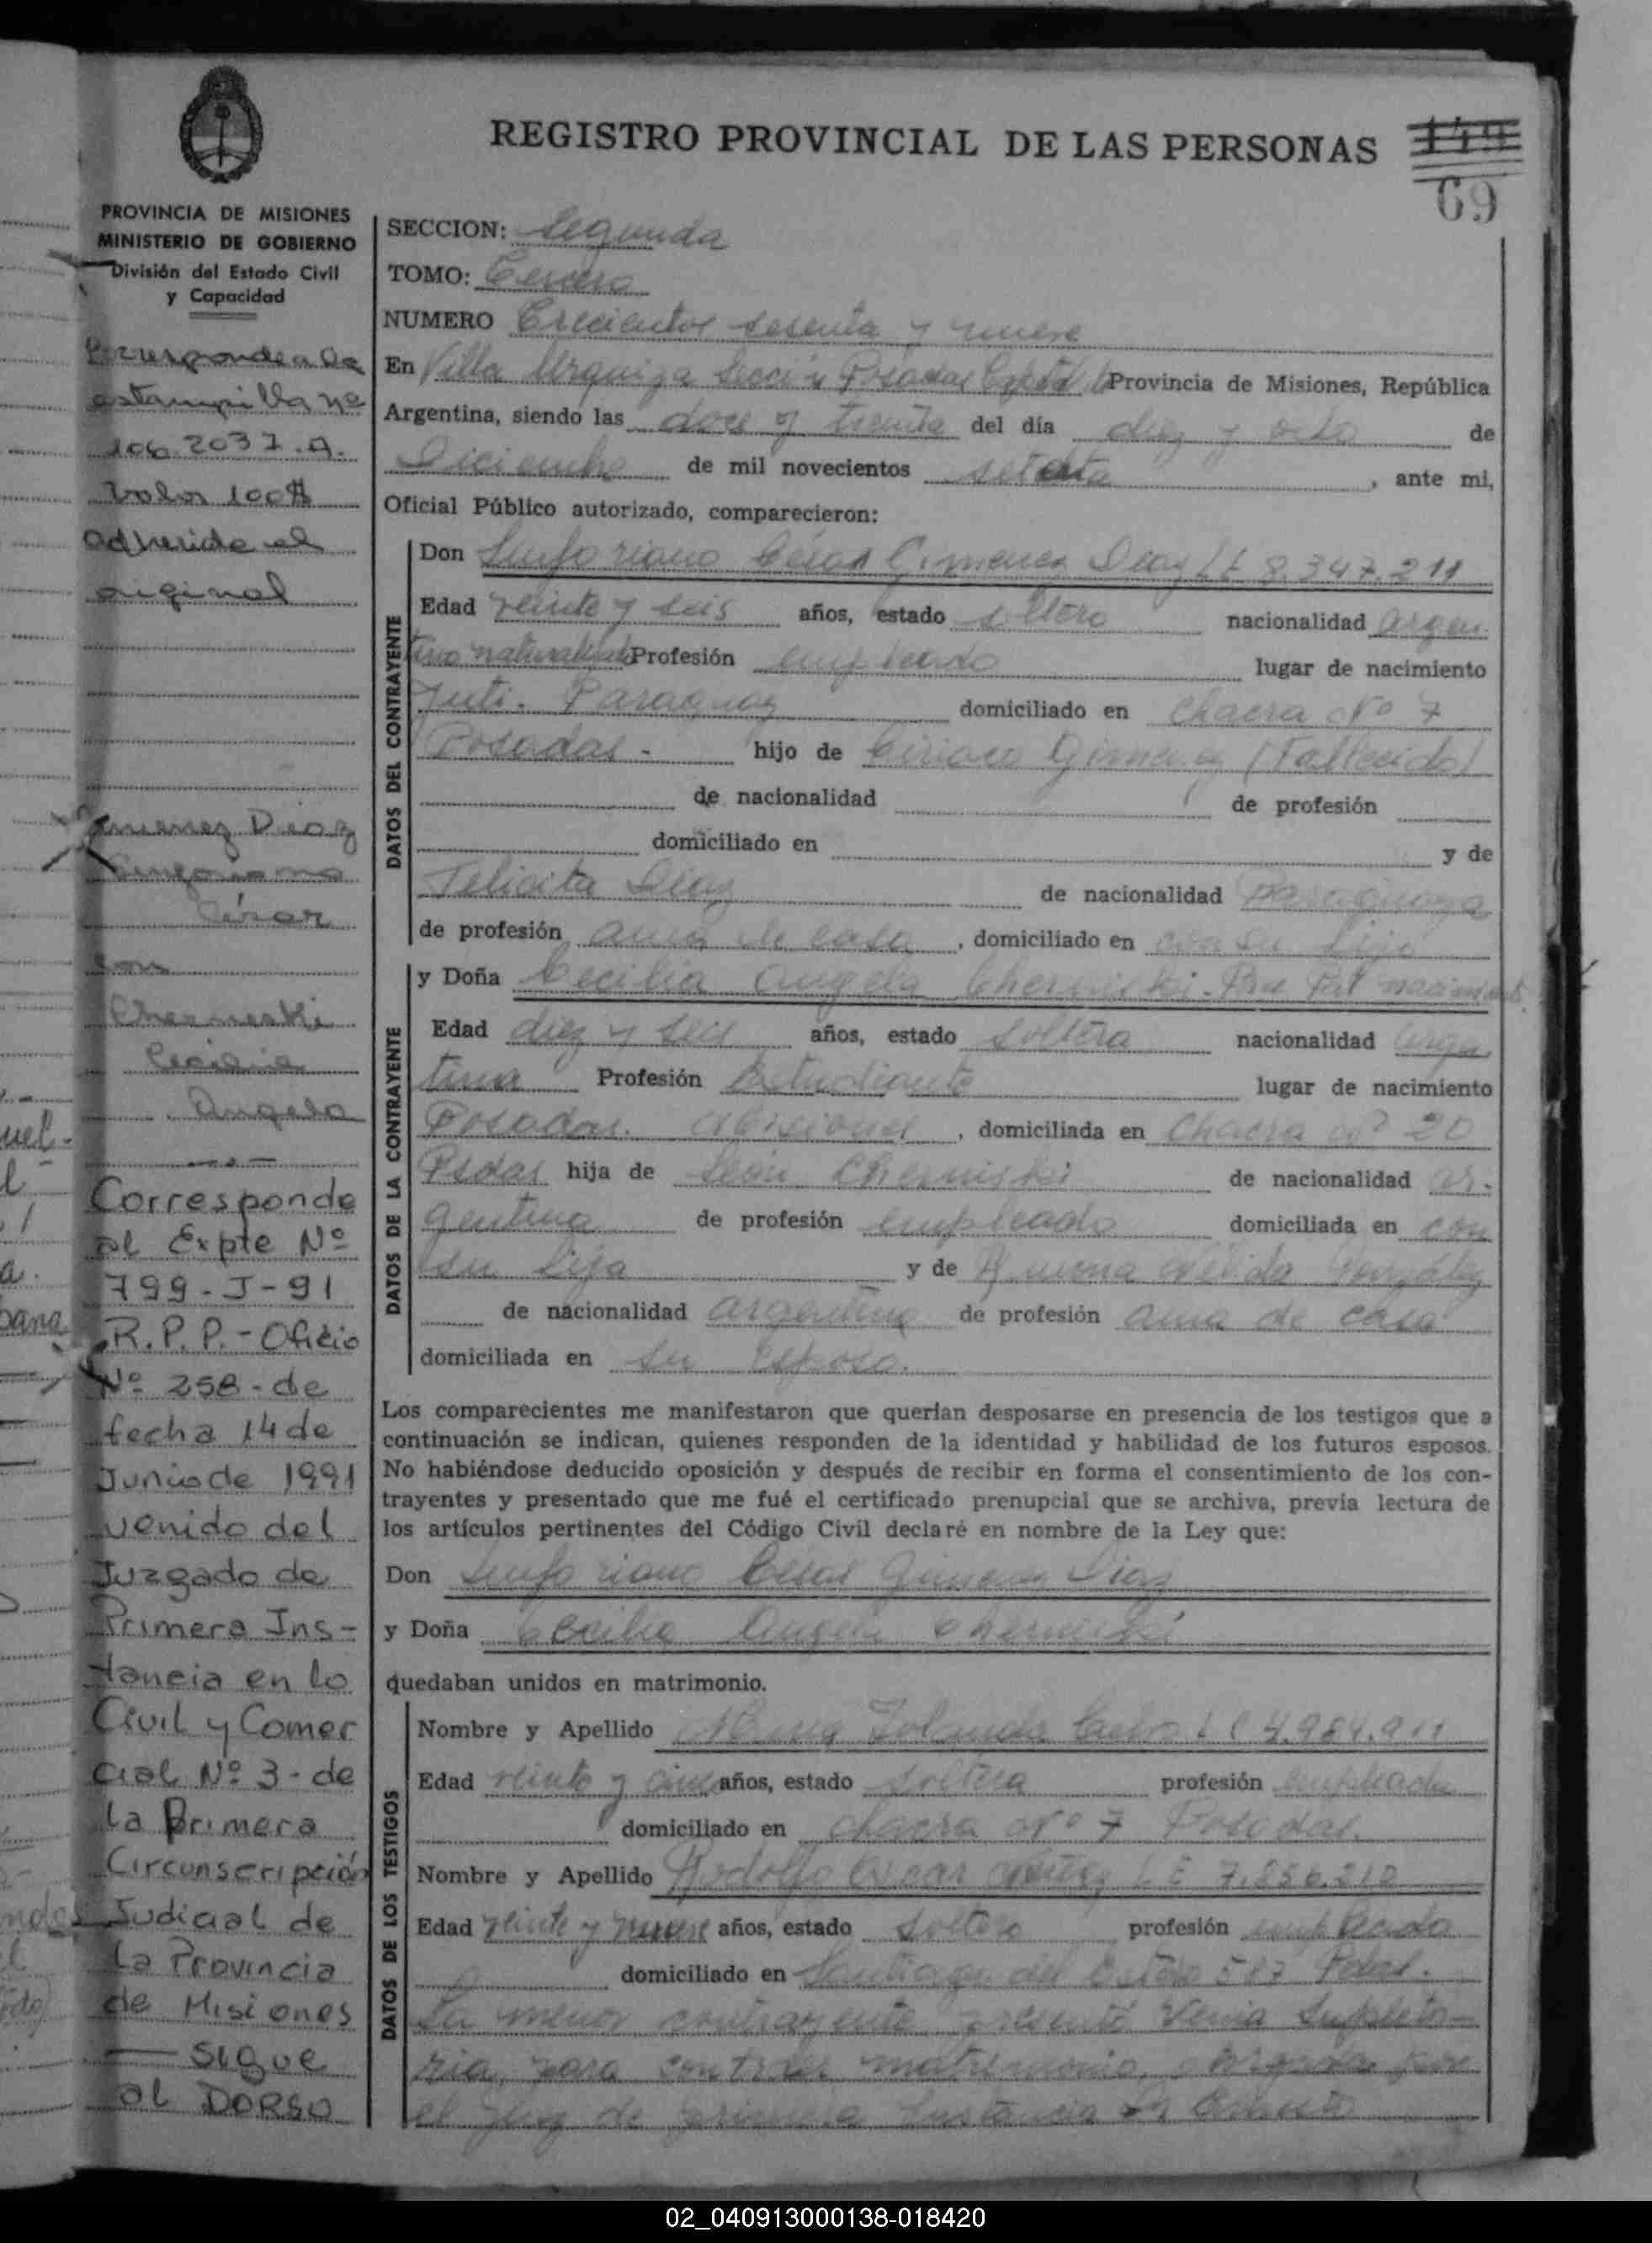 REGISTRO PROVINCIAL DE LAS PERSONAS
149
69
PROVINCIA DE MISIONES
MINISTERIO DE GOBIERNO
División del Estado Civil
y Capacidad
Corresponde a la
estampilla nº
106.2037.A.
Valor 100$
adherida al
original
Gimenez Diaz
Sinforiano
César
con
Cherneski
Cecilia
Angela
Corresponde
al Expte Nº
799-J-91
R.P.P.- Oficio
Nº 258-de
fecha 14 de
Junio de 1991
venido del
Juzgado de
Primera Ins-
tancia en lo
Civil y Comer
cial Nº 3-de
la Primera
Circunscripción
Judicial de
la Provincia
de Misiones
— Sigue
al DORSO
SECCION: Segunda
TOMO: Tercero
NUMERO Trecientos sesenta y nueve
En Villa Urquiza Sección Posadas Capital Provincia de Misiones, República
Argentina, siendo las doce y treinta del día diez y ocho de
Diciembre de mil novecientos setenta, ante mi,
Oficial Público autorizado, comparecieron:
DATOS DEL CONTRAYENTE
Don Sinforiano César Gimenez Diaz LE 8.347.211
Edad veinte y seis años, estado soltero nacionalidad argen
tino naturalizado Profesión empleado lugar de nacimiento
Yuti. Paraguay domiciliado en Chacra Nº 7
Posadas - hijo de Ciriaco Gimenez (Fallecido)
de nacionalidad de profesión
domiciliado en y de
Felicita Diaz de nacionalidad Paraguaya
de profesión ama de casa, domiciliado en con su hijo
DATOS DE LA CONTRAYENTE
y Doña Cecilia Angela Cherniski. nacimiento
Edad diez y seis años, estado soltera nacionalidad argen
tina Profesión Estudiante lugar de nacimiento
Posadas. Misiones, domiciliada en Chacra nº 20
Psdas hija de León Cherniski de nacionalidad ar-
gentina de profesión empleado domiciliada en con
su hija y de Ramona Nélida González
de nacionalidad argentina de profesión ama de casa
domiciliada en su esposo.
Los comparecientes me manifestaron que querían desposarse en presencia de los testigos que a
continuación se indican, quienes responden de la identidad y habilidad de los futuros esposos.
No habiéndose deducido oposición y después de recibir en forma el consentimiento de los con-
trayentes y presentado que me fué el certificado prenupcial que se archiva, previa lectura de
los artículos pertinentes del Código Civil declaré en nombre de la Ley que:
Don Sinforiano Cesar Gimenez Diaz
y Doña Cecilia Angela Cherniski
quedaban unidos en matrimonio.
DATOS DE LOS TESTIGOS
Nombre y Apellido Yolanda 4.964.911
Edad veinte y cinco años, estado soltera profesión empleada
domiciliado en chacra Nº 7 Posadas.
Nombre y Apellido Rodolfo Oscar LE 7.856.212
Edad veinte y nueve años, estado soltero profesión empleado
domiciliado en Santiago del Estero 587 Psdas.
La menor contrayente presentó Venia Supleto-
ria, para contraer matrimonio, otorgada por
el Juez de primera Instancia
02_040913000138-018420